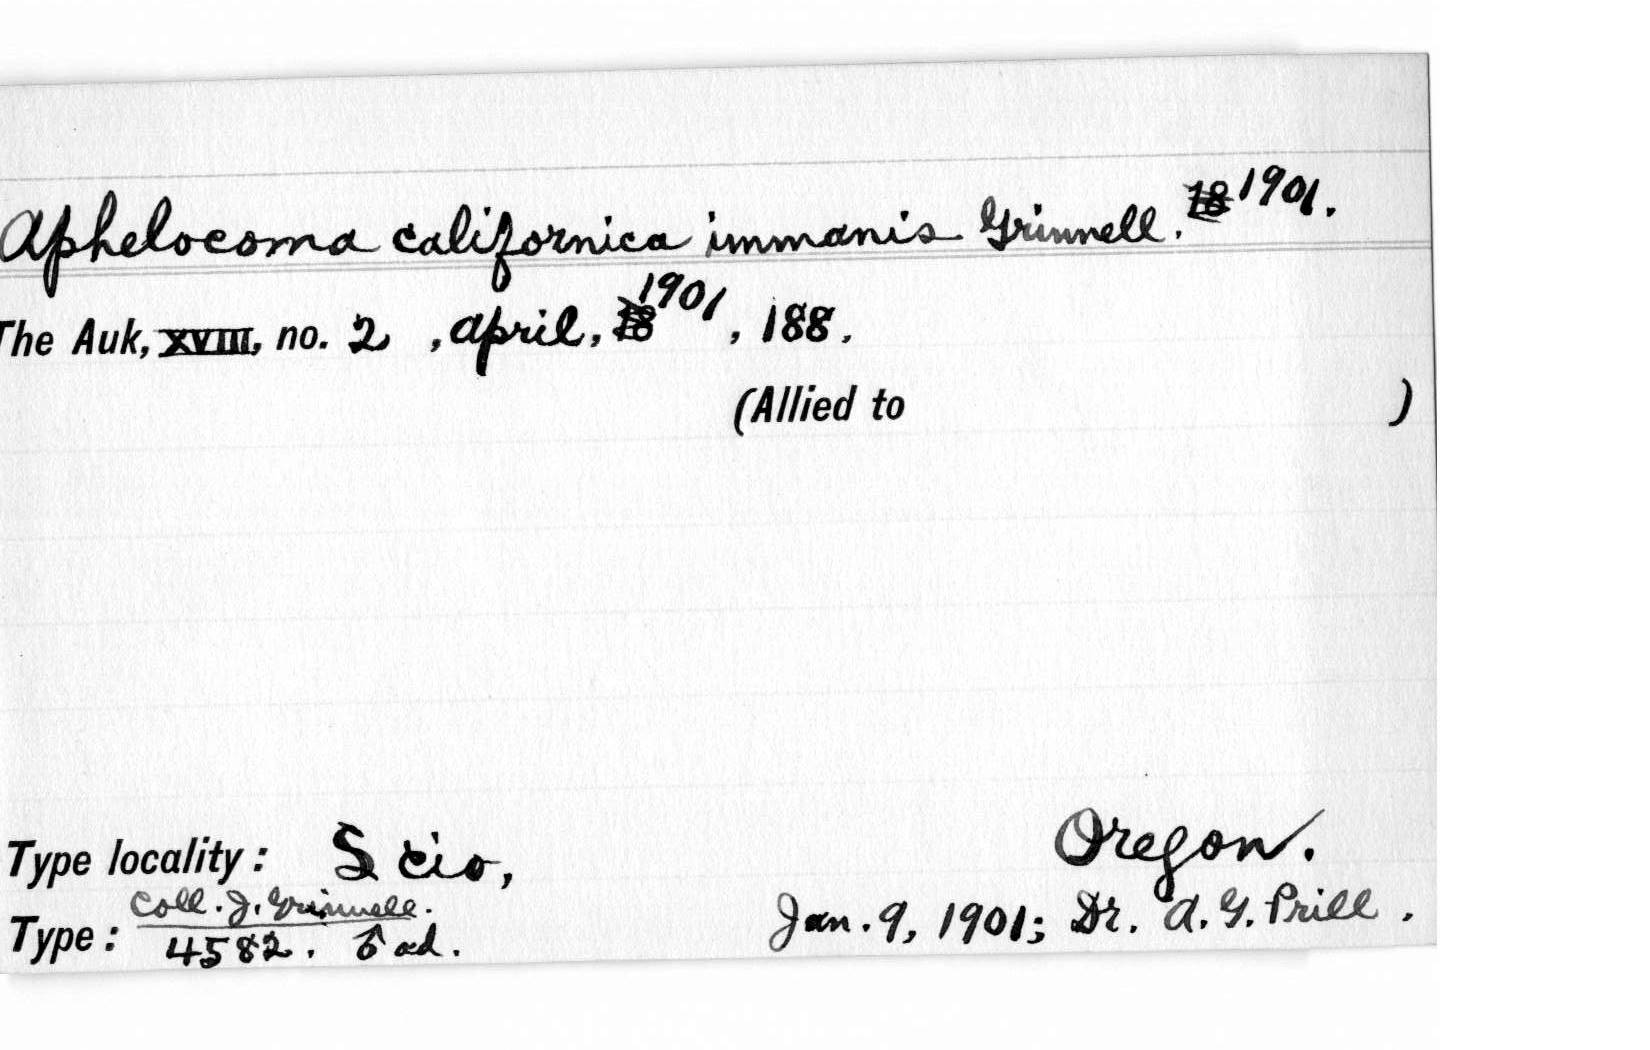 Aphelocoma californica immanis Grinnell. 18 1901.
The Auk, XVIII, no. 2, april, 18 1901, 188.
(Allied to )
Type locality: Scio, Oregon.
Type: Coll. J. Grinnell. 4582. ♂ ad. Jan. 9, 1901; Dr. A. G. Prill.